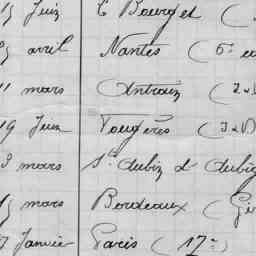 Juin C Bourget (
avril Nantes (6e
11 mars Antrain (
19 Juin Fougères (
mars St Aubin d'Aubig
mars Bordeaux (Gi
7 Janvier Paris (17e)